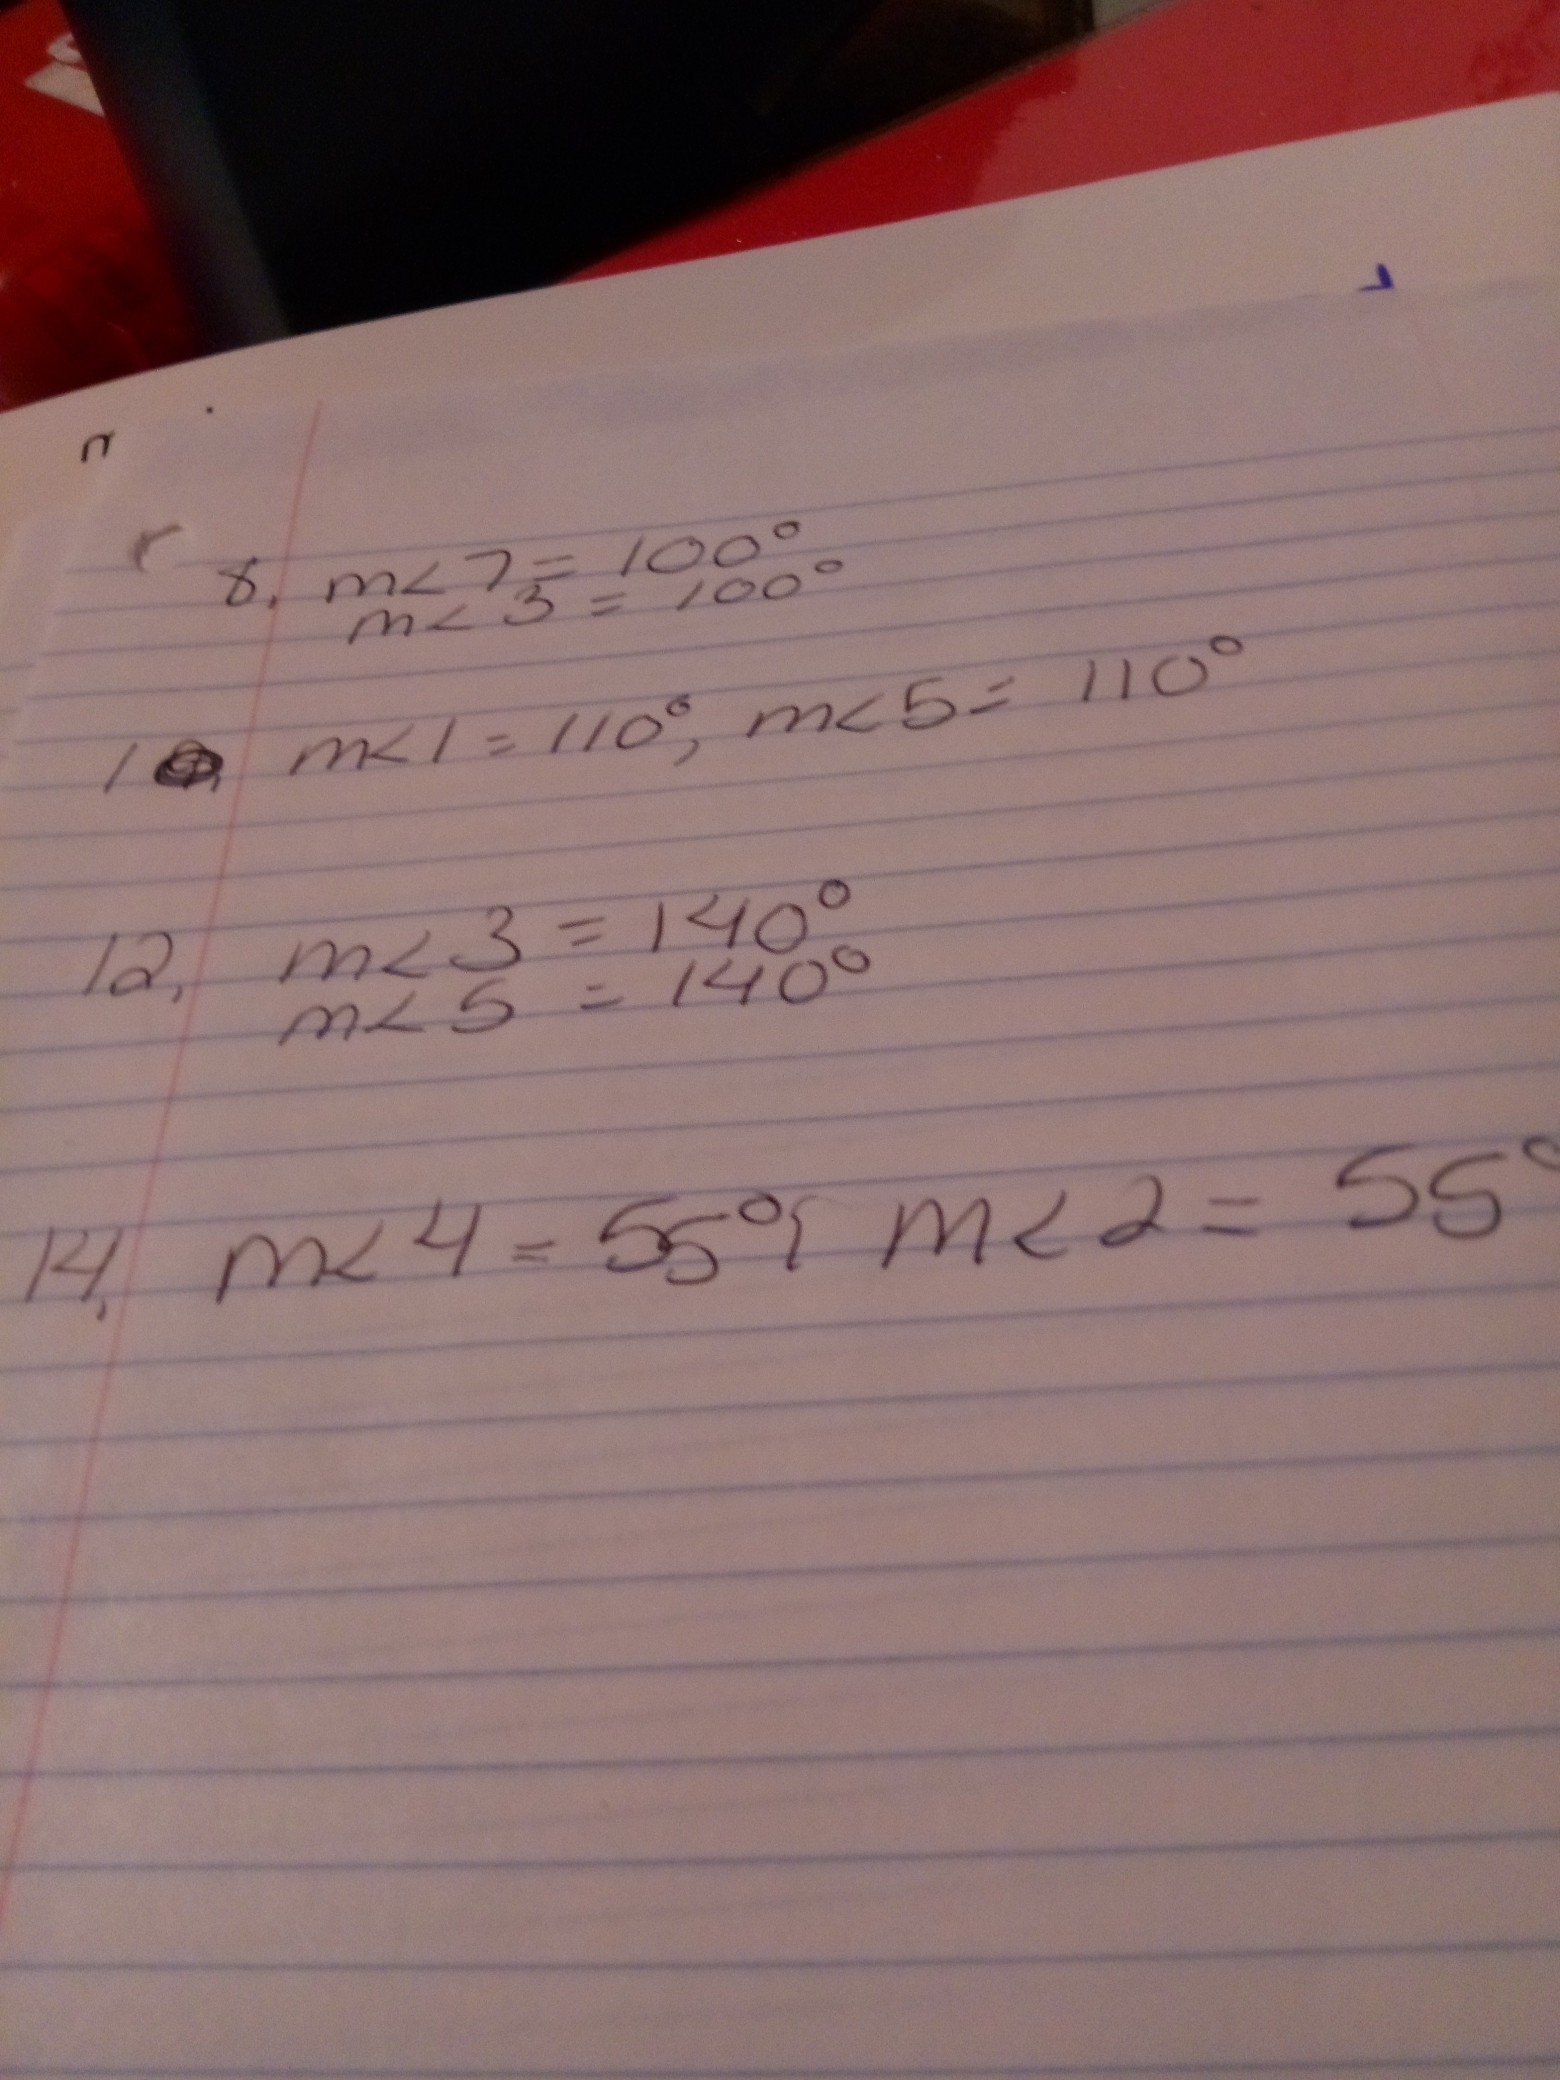 8. m<7 = 100°
m<3 = 100°
10. m<1 = 110°, m<5 = 110°
12. m<3 = 140°
m<5 = 140°
14. m<4 = 55°; m<2 = 55°